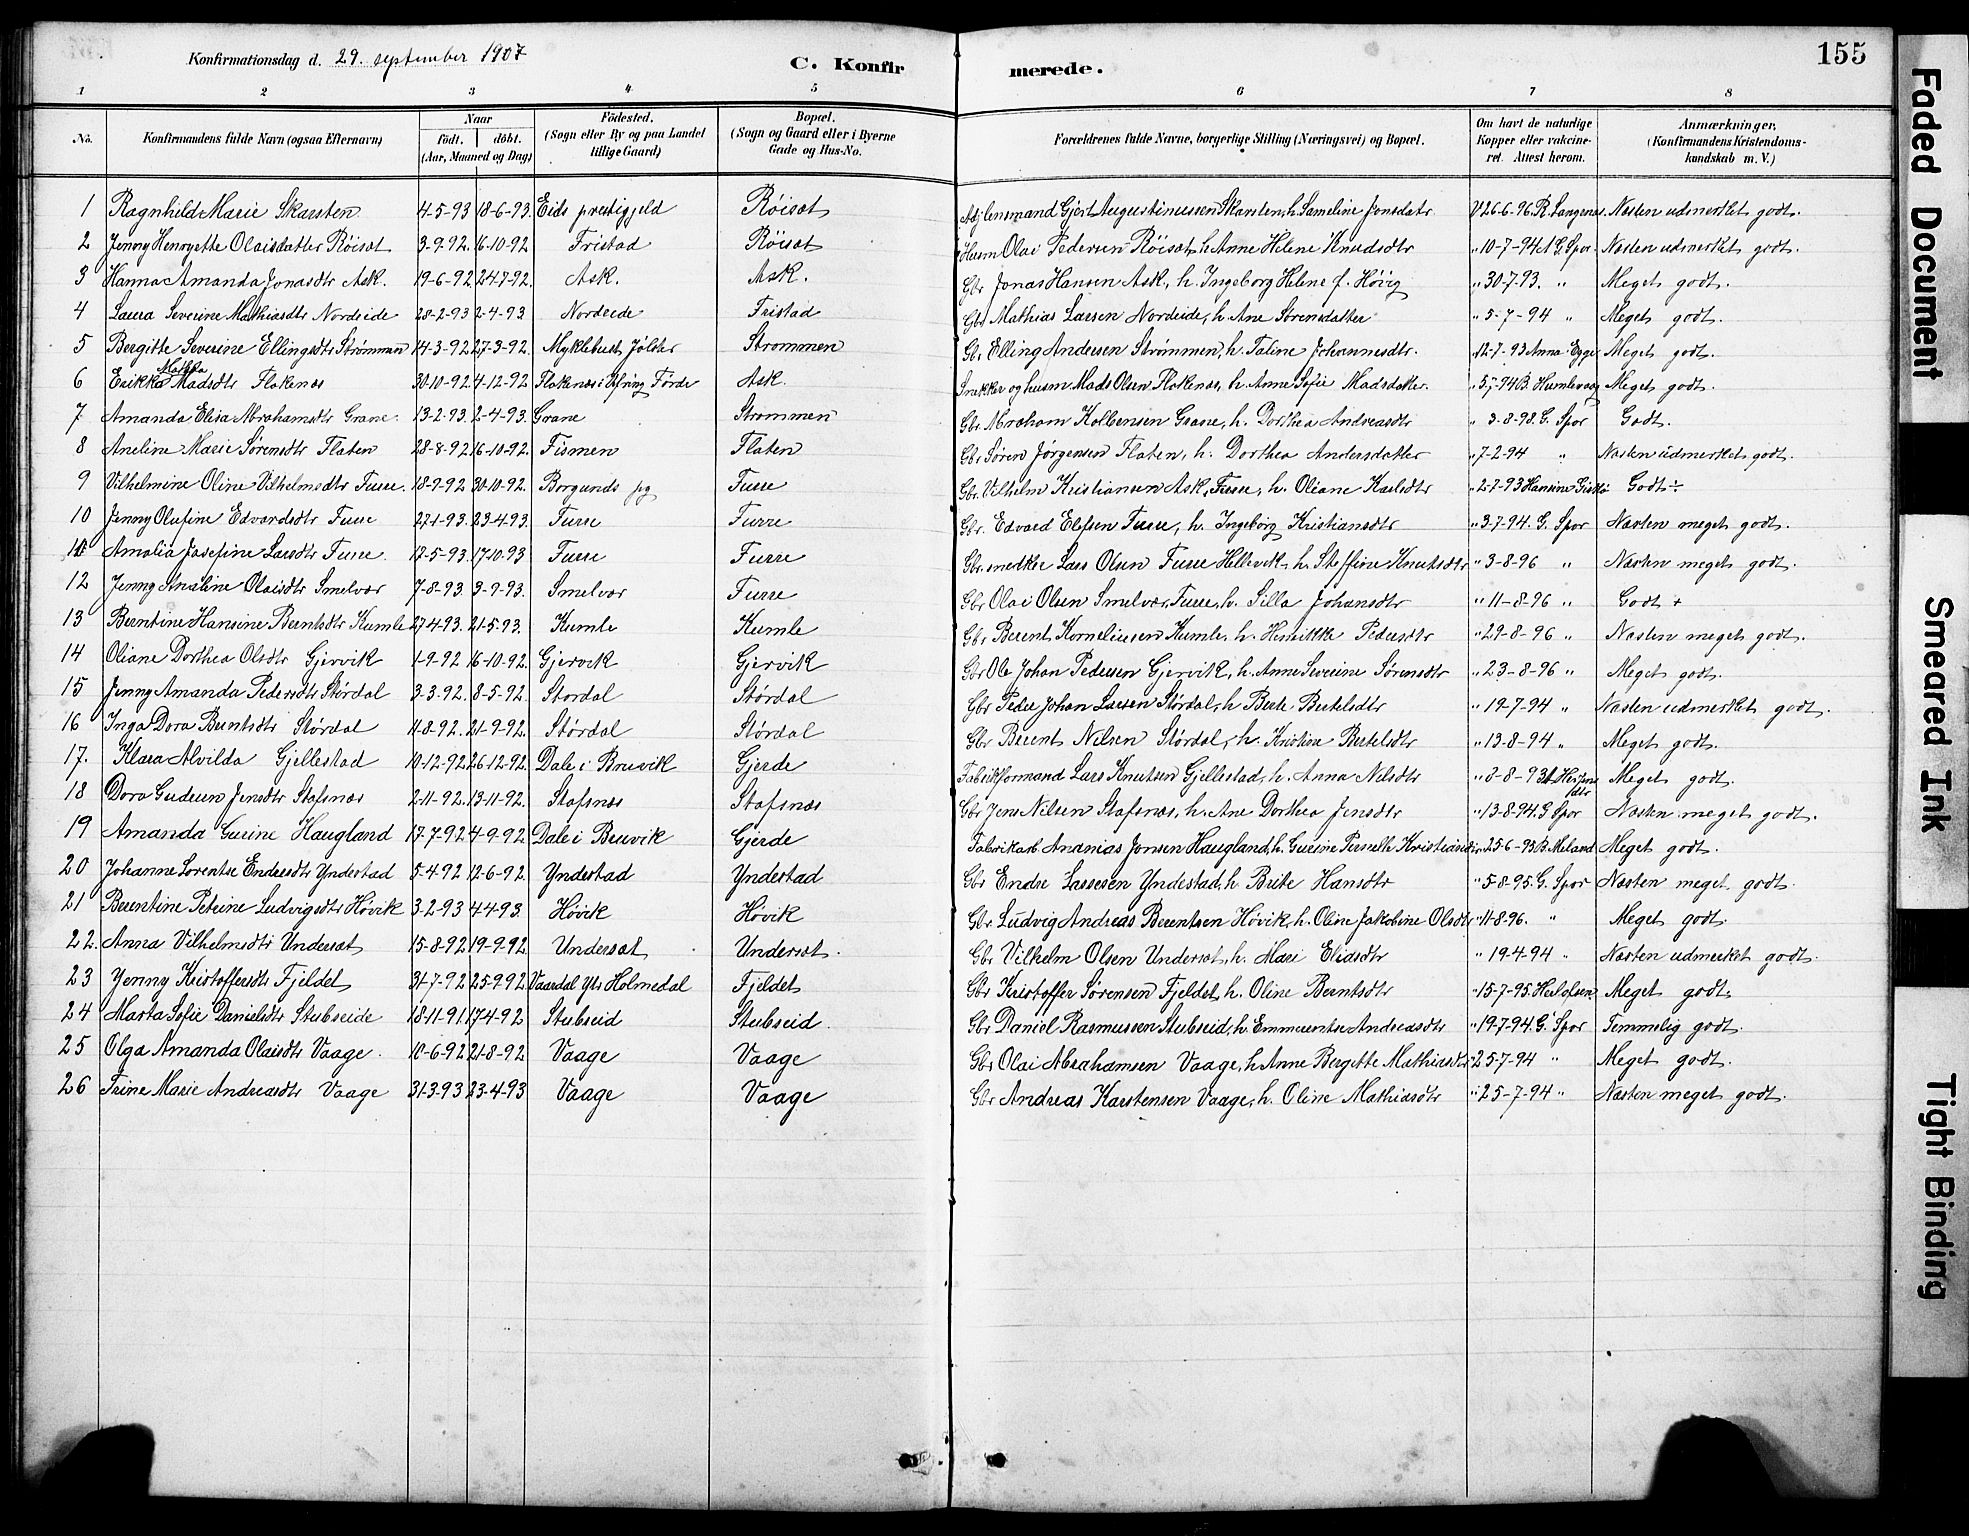 Konfirmationsdag d. 29. september 1907 C. Konfirmerede. 155
1 2 3 4 5 6 7 8
No. Konfirmandens fulde Navn (ogsaa Efternavn) Naar födt. döbt. (Aar, Maaned og Dag) Födested. (Sogn eller By og paa Landet tillige Gaard) Bopæl. (Sogn og Gaard eller i Byerne Gade og Hus-No. Forældrenes fulde Navne, borgerlige Stilling (Næringsvei) og Bopæl. Om havt de naturlige Kopper eller vakcineret. Attest herom. Anmærkninger, (Konfirmandens Kristendomskundskab m. V.)
1 Ragnhild Marie Skarsten 4-5-93 18-6-93. Eids prestigjeld Röisat lensmand Gjert Augustinussen Skarsten, h. Sameline Jonsdatr V 26-6-96. R. Langenes. Nästen udmerket godt.
2 Jenny Henryette Olaisdatter Röisat 3-9-92. 16-10-92 Fristad Röisat Husm Olai Pedersen Röisat, h. Anne Helene Knudsdtr " 10-7-94 G. Spor. Nästen udmerket godt.
3 Hanna Amanda Jonasdtr Ask. 19-6-92 24-7-92. Ask. Ask. Gbr Jonas Hansen Ask, h. Ingeborg Helene f. Høvig " 30-7-93. " Meget godt.
4 Laura Severine Mathiasdtr Nordeide 28-2-93 2-4-93 Nordeide Fristad Gbr Mathias Larsen Nordeide, h. Ane Sørensdatter " 5-7-94 " Meget godt.
5 Bergitte Severine Ellingsdtr Strømmen 14-3-92 27-3-92. Myklebust Jølster Strommen Gbr Elling Andersen Strømmen, h. Taline Johannesdtr. " 12-7-93 Anna Egge Meget godt.
6 Erikka Mathea Madsdtr Flokenes 30-10-92 4-12-92 Flokenes i Førde Ask. Snekker og husm Mads Olsen Flokenes, h. Anne Sofie Madsdatter " 5-7-94 B. Humlevaag Meget godt.
7 Amanda Elisa Abrahamsdtr Grane. 13-2-93 2-4-93. Grane Strommen Gbr Abraham Kolbensen Grane, h. Dorthea Andreasdtr " 3-8-98. G. Spor Godt.
8 Aneline Marie Sørensdtr Flaten 28-8-92 16-10-92. Fismen Flaten Gbr Søren Jørgensen Flaten, h. Dorthea Andersdatter " 7-2-94 " Nästen udmerket godt.
9 Vilhelmine Oline Vilhelmsdtr Furre. 18-9-92 30-10-92. Borgunds pg Furre Gbr. Vilhelm Kristiansen Ask, Furre, h. Oliane Karlsdtr " 2-7-93 Hansine Giskö Godt ÷
10 Jenny Olufine Edvardsdtr Furre 27-1-93. 23-4-93. Furre Furre Gbr. Edvard Elefsen Furre, h. Ingeborg Kristiansdtr " 3-7-94. G. Spor Nästen meget godt.
11 Amalia Josefine Larsdtr Furre. 12-5-93. 17-10-93 Furre Furre Gbr. snedker Lars Olsen Furre Hellevik, h. Steffine Knutsdtr " 3-8-96 " Nästen meget godt.
12 Jenny Analine Olaisdtr Smelvær 7-8-93. 3-9-93. Smelvær Furre Gbr Olai Olsen Smelvær, Furre, h. Silla Johansdtr " 11-8-96 " Godt +
13 Berntine Hansine Berntsdtr Kumle 27-4-93. 21-5-93. Kumle Kumle Gbr Berent Korneliusen Kumle, h. Henrikke Pedersdtr " 29-8-96 " Nästen meget godt.
14 Oliane Dorthea Olsdtr Gjervik 1-9-92 16-10-92. Gjervik Gjervik Gbr Ole Johan Pedersen Gjervik, h. Anne Severine Sørensdtr " 23-8-96 " Meget godt.
15 Jenny Amanda Pedersdtr Stórdal 3-3-92. 8-5-92. Stordal Stórdal Gbr Peder Johan Larsen Stórdal, h Berte Bertelsdtr " 19-7-94 " Nästen udmerket godt.
16 Inga Dora Berntsdtr Stórdal 11-8-92. 21-9-92. Stórdal Stórdal Gbr Berent Nilsen Stórdal, h. Kristine Bertelsdtr " 13-8-94 " Meget godt.
17. Klara Alvilda Gjellestad 10-12-92 26-12-92. Dale i Bruvik Gjerde Fabrikformand Lars Knutsen Gjellestad, h. Anna Nilsdtr Meget godt.
18 Dora Gudrun Jensdtr Stafsnes 2-11-92. 13-11-92. Stafsnes Stafsnes Gbr Jens Nilsen Stafsnes, h. Ane Dorthea Jensdtr " 13-8-94. G Spor Nästen meget godt.
19 Amanda Gurine Haugland 17-7-92 4-9-92. Dale i Bruvik Gjerde Fabrikarb Ananias Jonsen Haugland, h. Gurine Pernelle Kristiansdtr " 25-6-93 B. Meland Meget godt.
20 Johanne Lorentse Endresdtr Yndestad 5-4-92 12-6-92. Yndestad Yndestad Gbr Endre Lassesen Yndestad, h Brite Hansdtr " 5-8-95. G. Spor Nästen meget godt.
21 Berentine Petrine Ludvigsdtr Høvik 3-2-93 4-4-93. Høvik Høvik Gbr. Ludvig Andreas Berentsen Hövik, h. Oline Jakobine Olsdtr " 11-8-96. " Meget godt.
22. Anna Vilhelmsdtr Undersæt 15-8-92 19-9-92. Undersæt Undersæt. Gbr Vilhelm Olsen Undersæt, h. Mari Eliasdtr " 19-4-94 " Nästen udmerket godt.
23 Jenny Kristoffersdtr Fjeldet 31-7-92 25-9-92 Vaardal Ytr Holmedal Fjeldet Gbr Kristoffer Sörensen Fjeldet, h. Oline Berntsdtr " 15-7-95. Meget godt.
24 Marta Sofie Danielsdtr Stubseide 18-11-91. 17-4-92 Stubseid Stubseid. Gbr Daniel Rasmussen Stubseid, h. Emmerentse Andreasdtr " 19-7-94. G. Spor Temmelig godt.
25 Olga Amanda Olaisdtr Vaage. 10-6-92 21-8-92 Vaage Vaage Gbr Olai Abrahamsen Vaage, h Anne Bergette Mathiasdtr 25-7-94 " Meget godt.
26 Trine Marie Andreasdtr Vaage 31-3-93 23-4-93 Vaage Vaage Gbr Andreas Karstensen Vaage, h. Oline Mathiasdtr " 25-7-94 " Nästen meget godt.
Faded Document
Smeared Ink
Tight Binding